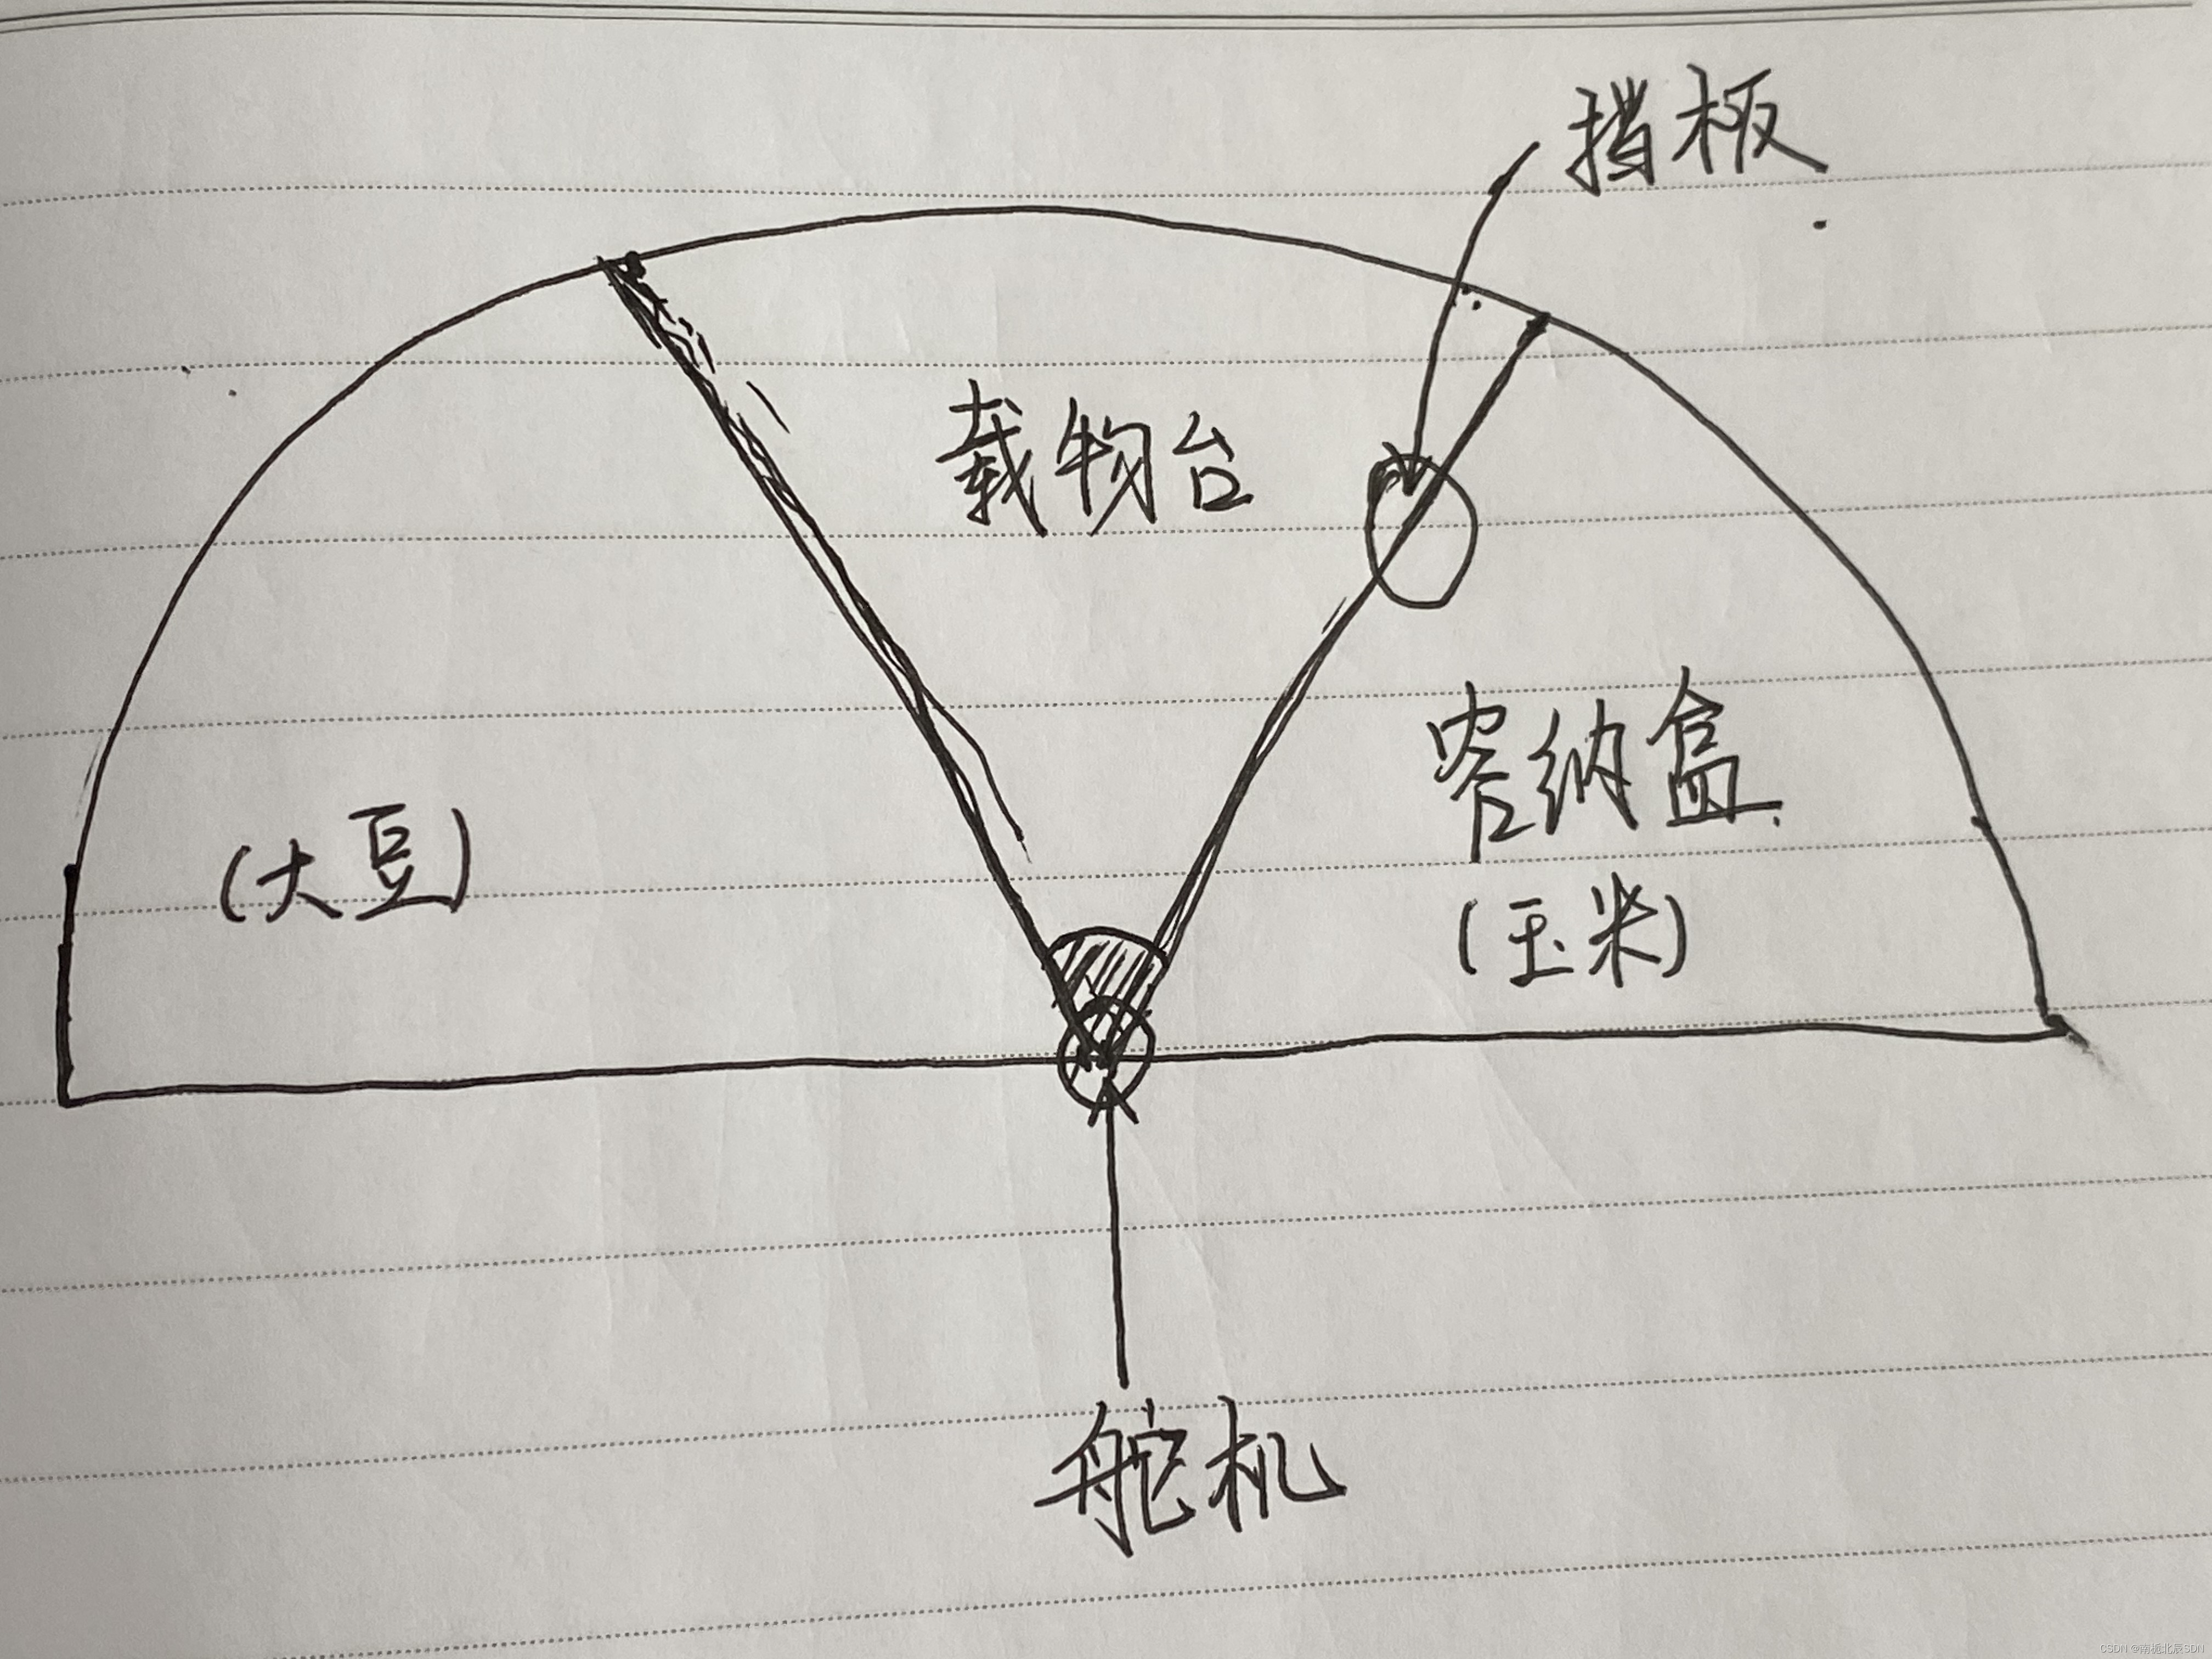 挡板
载物台
容纳盒
(大豆)
(玉米)
舵机
CSDN @南栀北辰SDN